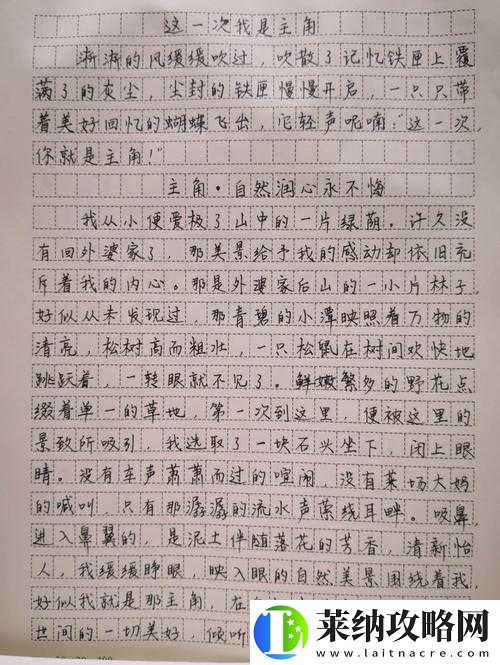 这一次我是主角
淅淅的风缓缓吹过，吹散了记忆铁匣上覆
满了的灰尘，尘封的铁匣慢慢开启，一只只带
着美好回忆的蝴蝶飞出，它轻声呢喃："这一次，
你就是主角！"
主角·自然润心永不悔
我从小便爱极了山中的一片绿荫。许久没
有回外婆家了，那美景给予我的感动却依旧充
斥着我的内心。那是外婆家后山的一小片林子，
好似从未发现过，那青碧的小潭映照着万物的
清亮，松树高而粗壮，一只松鼠在树间欢快地
跳跃着，一转眼就不见了。鲜嫩繁多的野花点
缀着单一的草地，第一次到这里，便被这里的
景致所吸引，我选取了一块石头坐下，闭上眼
睛。没有车声萧萧而过的喧闹，没有菜场大妈
的喊叫，只有那潺潺的流水声萦绕耳畔。吸鼻，
进入鼻翼的，是泥土伴随落花的芳香，清新怡
人，我缓缓睁眼，映入眼的自然美景围绕着我，
好似我就是那主角，在
世间的一切美好，倾听
莱纳攻略网
www.laitnacre.com